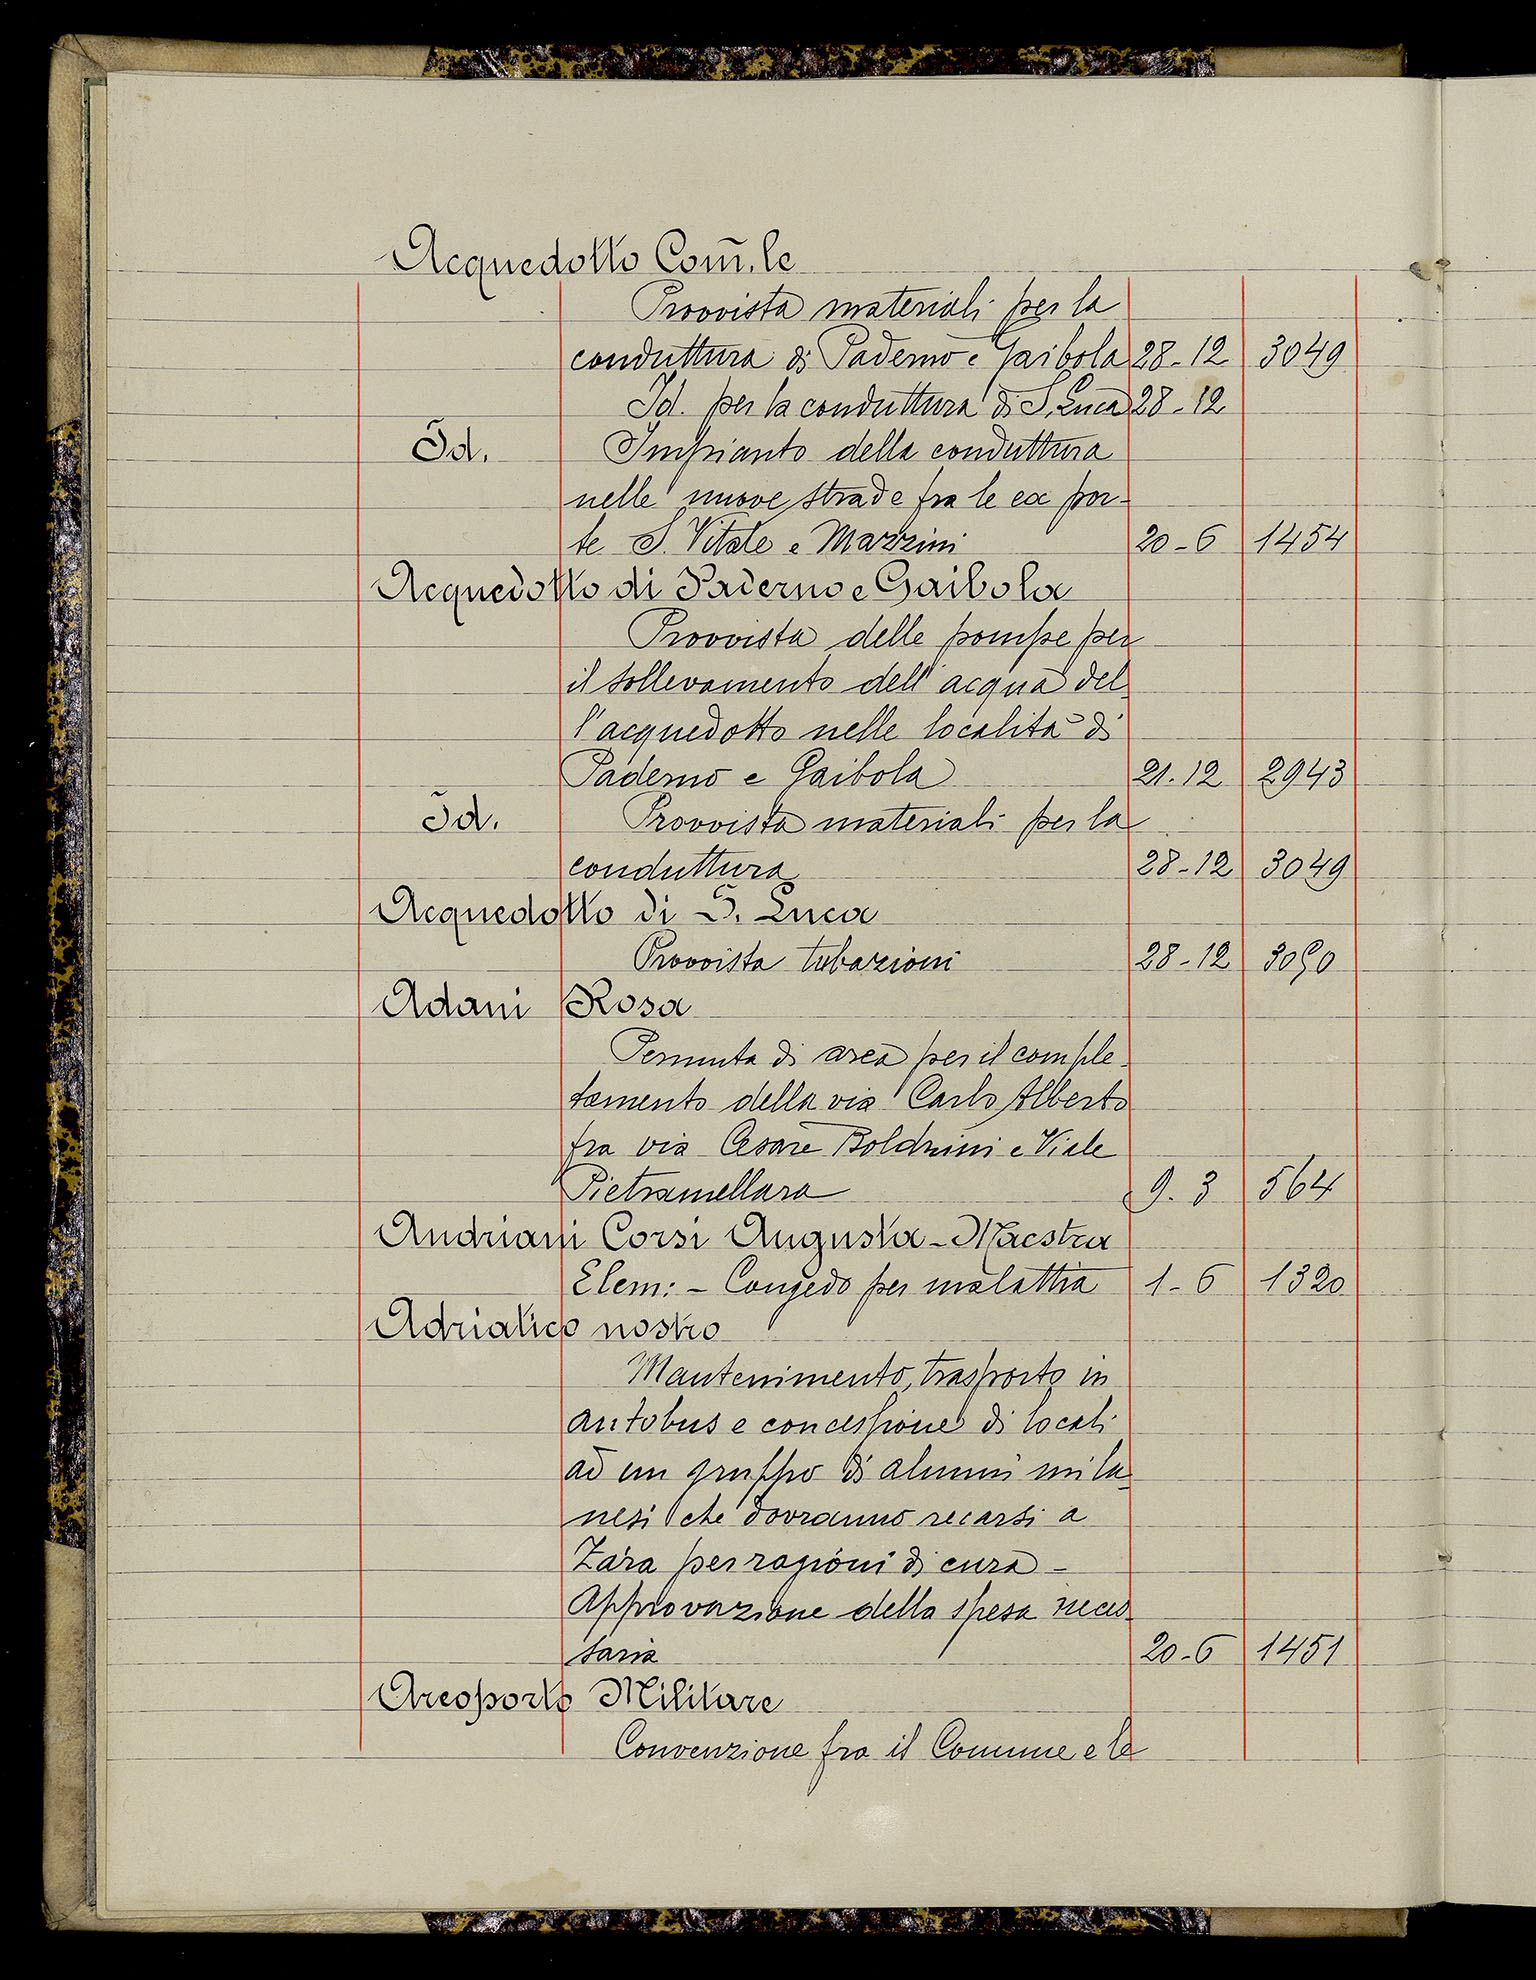 Acquedotto Com̃.le
Provvista materiali per la
conduttura di Paderno e Gaibola 28-12 3049
Id. per la conduttura di S. Luca 28-12
Id. Impianto della conduttura
nelle nuove strade fra le ex por-
te S. Vitale e Mazzini 20-6 1454
Acquedotto di Paderno e Gaibola
Provvista delle pompe per
il sollevamento dell'acqua del
l'acquedotto nelle località di
Paderno e Gaibola 21.12 2943
Id. Provvista materiali per la
conduttura 28-12 3049
Acquedotto di S. Luca
Provvista tubazioni 28-12 3050
Adani Rosa
Permuta di area per il comple-
tamento della via Carlo Alberto
fra via Cesare Boldrini e Viale
Pietramellara 9.3 564
Andriani Corsi Augusta - Maestra
Elem: - Congedo per malattia 1-6 1320
Adriatico nostro
Mantenimento, trasporto in
autobus e concessione di locali
ad un gruppo di alunni mila-
nesi che dovranno recarsi a
Zara per ragioni di cura -
Approvazione della spesa neces-
saria 20-6 1451
Areoporto Militare
Convenzione fra il Comune e la